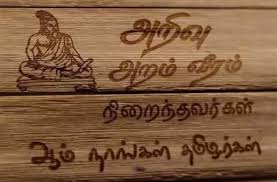 அறிவு
அறம் வீரம்
நிறைந்தவர்கள்
ஆம் நாங்கள் தமிழர்கள்